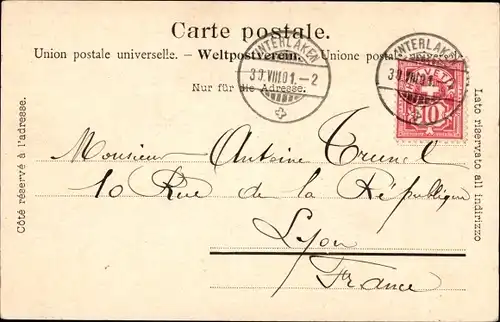 Carte postale.
Union postale universelle. - Weltpostverein. - Unione postale
Nur für die Adresse.
INTERLAKEN
30.VIII.01.-2
INTERLAKEN
30.VIII.01.
HELVETIA
10
Côté réservé à l'adresse.
Lato riservato all indirizzo
Monsieur Antoine
10 Rue de la République
Lyon
France